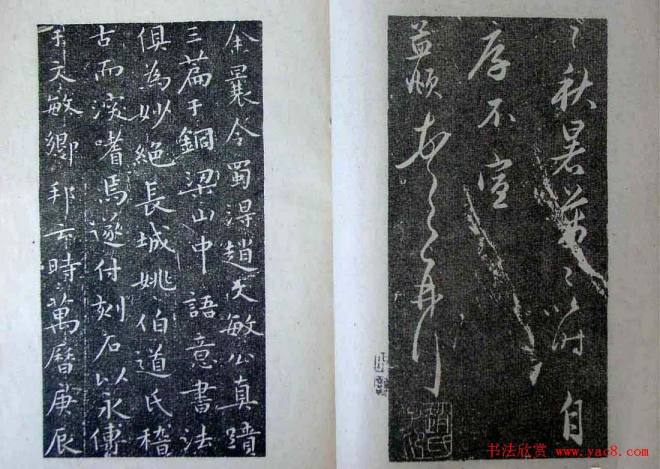 秋暑萬々以时自
厚不宣
孟頫
趙氏子昂
余曩令蜀得趙文敏公真蹟
三篇于銅梁山中語意書法
俱為妙絕長城姚伯道氏稽
古而深嗜焉遂付刻石以永傳
于文敏鄉邦云時萬曆庚辰
书法欣赏 www.yac8.com